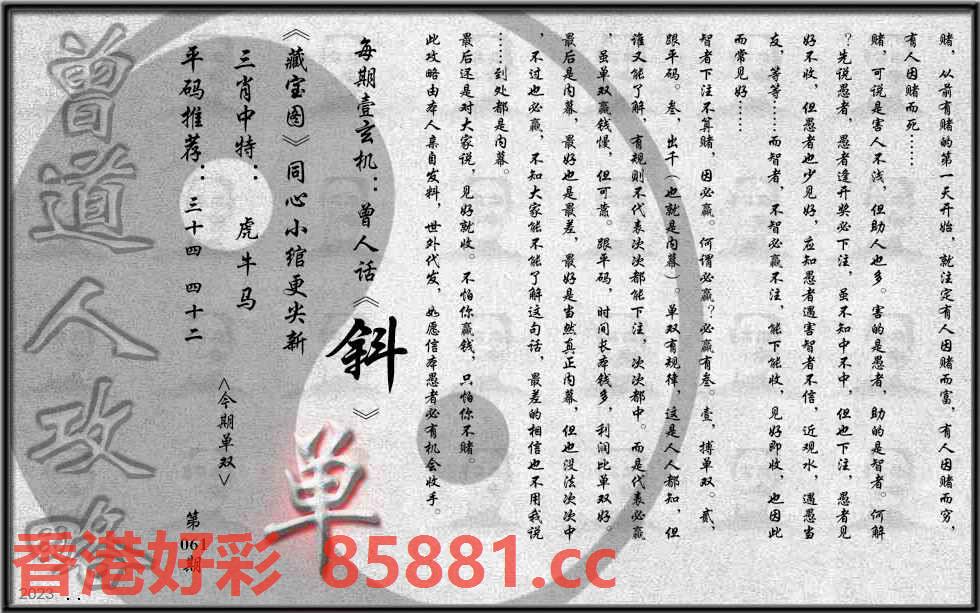 赌，从前有赌的第一天开始，就注定有人因赌而富，有人因赌而穷，
有人因赌而死……
赌，可说是害人不浅，但助人也多。害的是愚者，助的是智者。何解
？先说愚者，愚者逢开奖必下注，虽不知中不中，但也下注，愚者见
好不收，但愚者也少见好，应知愚者遇害智者不信，近观水，遇愚当
友，等等……而智者，不智必赢不注，能下能收，见好即收，也因此
而常见好……
智者下注不算赌，因必赢。何谓必赢？必赢有叁。壹，搏单双。贰，
跟平码。叁，出千（也就是内幕）。单双有规律，这是人人都知，但
谁又能了解，有规则不代表次次都能下注，次次都中。而是代表必赢
，虽单双赢钱慢，但可靠。跟平码，时间长本钱多，利润比单双好。
最后是内幕，最好也是最差，最好是当然真正内幕，但也没法次次中
，不过也必赢，不知大家能不能了解这句话，最差的相信也不用我说
……到处都是内幕。
最后还是对大家说，见好就收。不怕你赢钱，只怕你不赌。
此攻略由本人亲自发料，世外代发，如愿信本愚者必有机会收手。
每期壹玄机：曾人话《斜》
《藏宝图》同心小绾更尖新
三肖中特：虎牛马
平码推荐：三十四 四十二
<今期单双>
单
第
061
期
曾道人攻略
香港好彩 85881.cc
2023